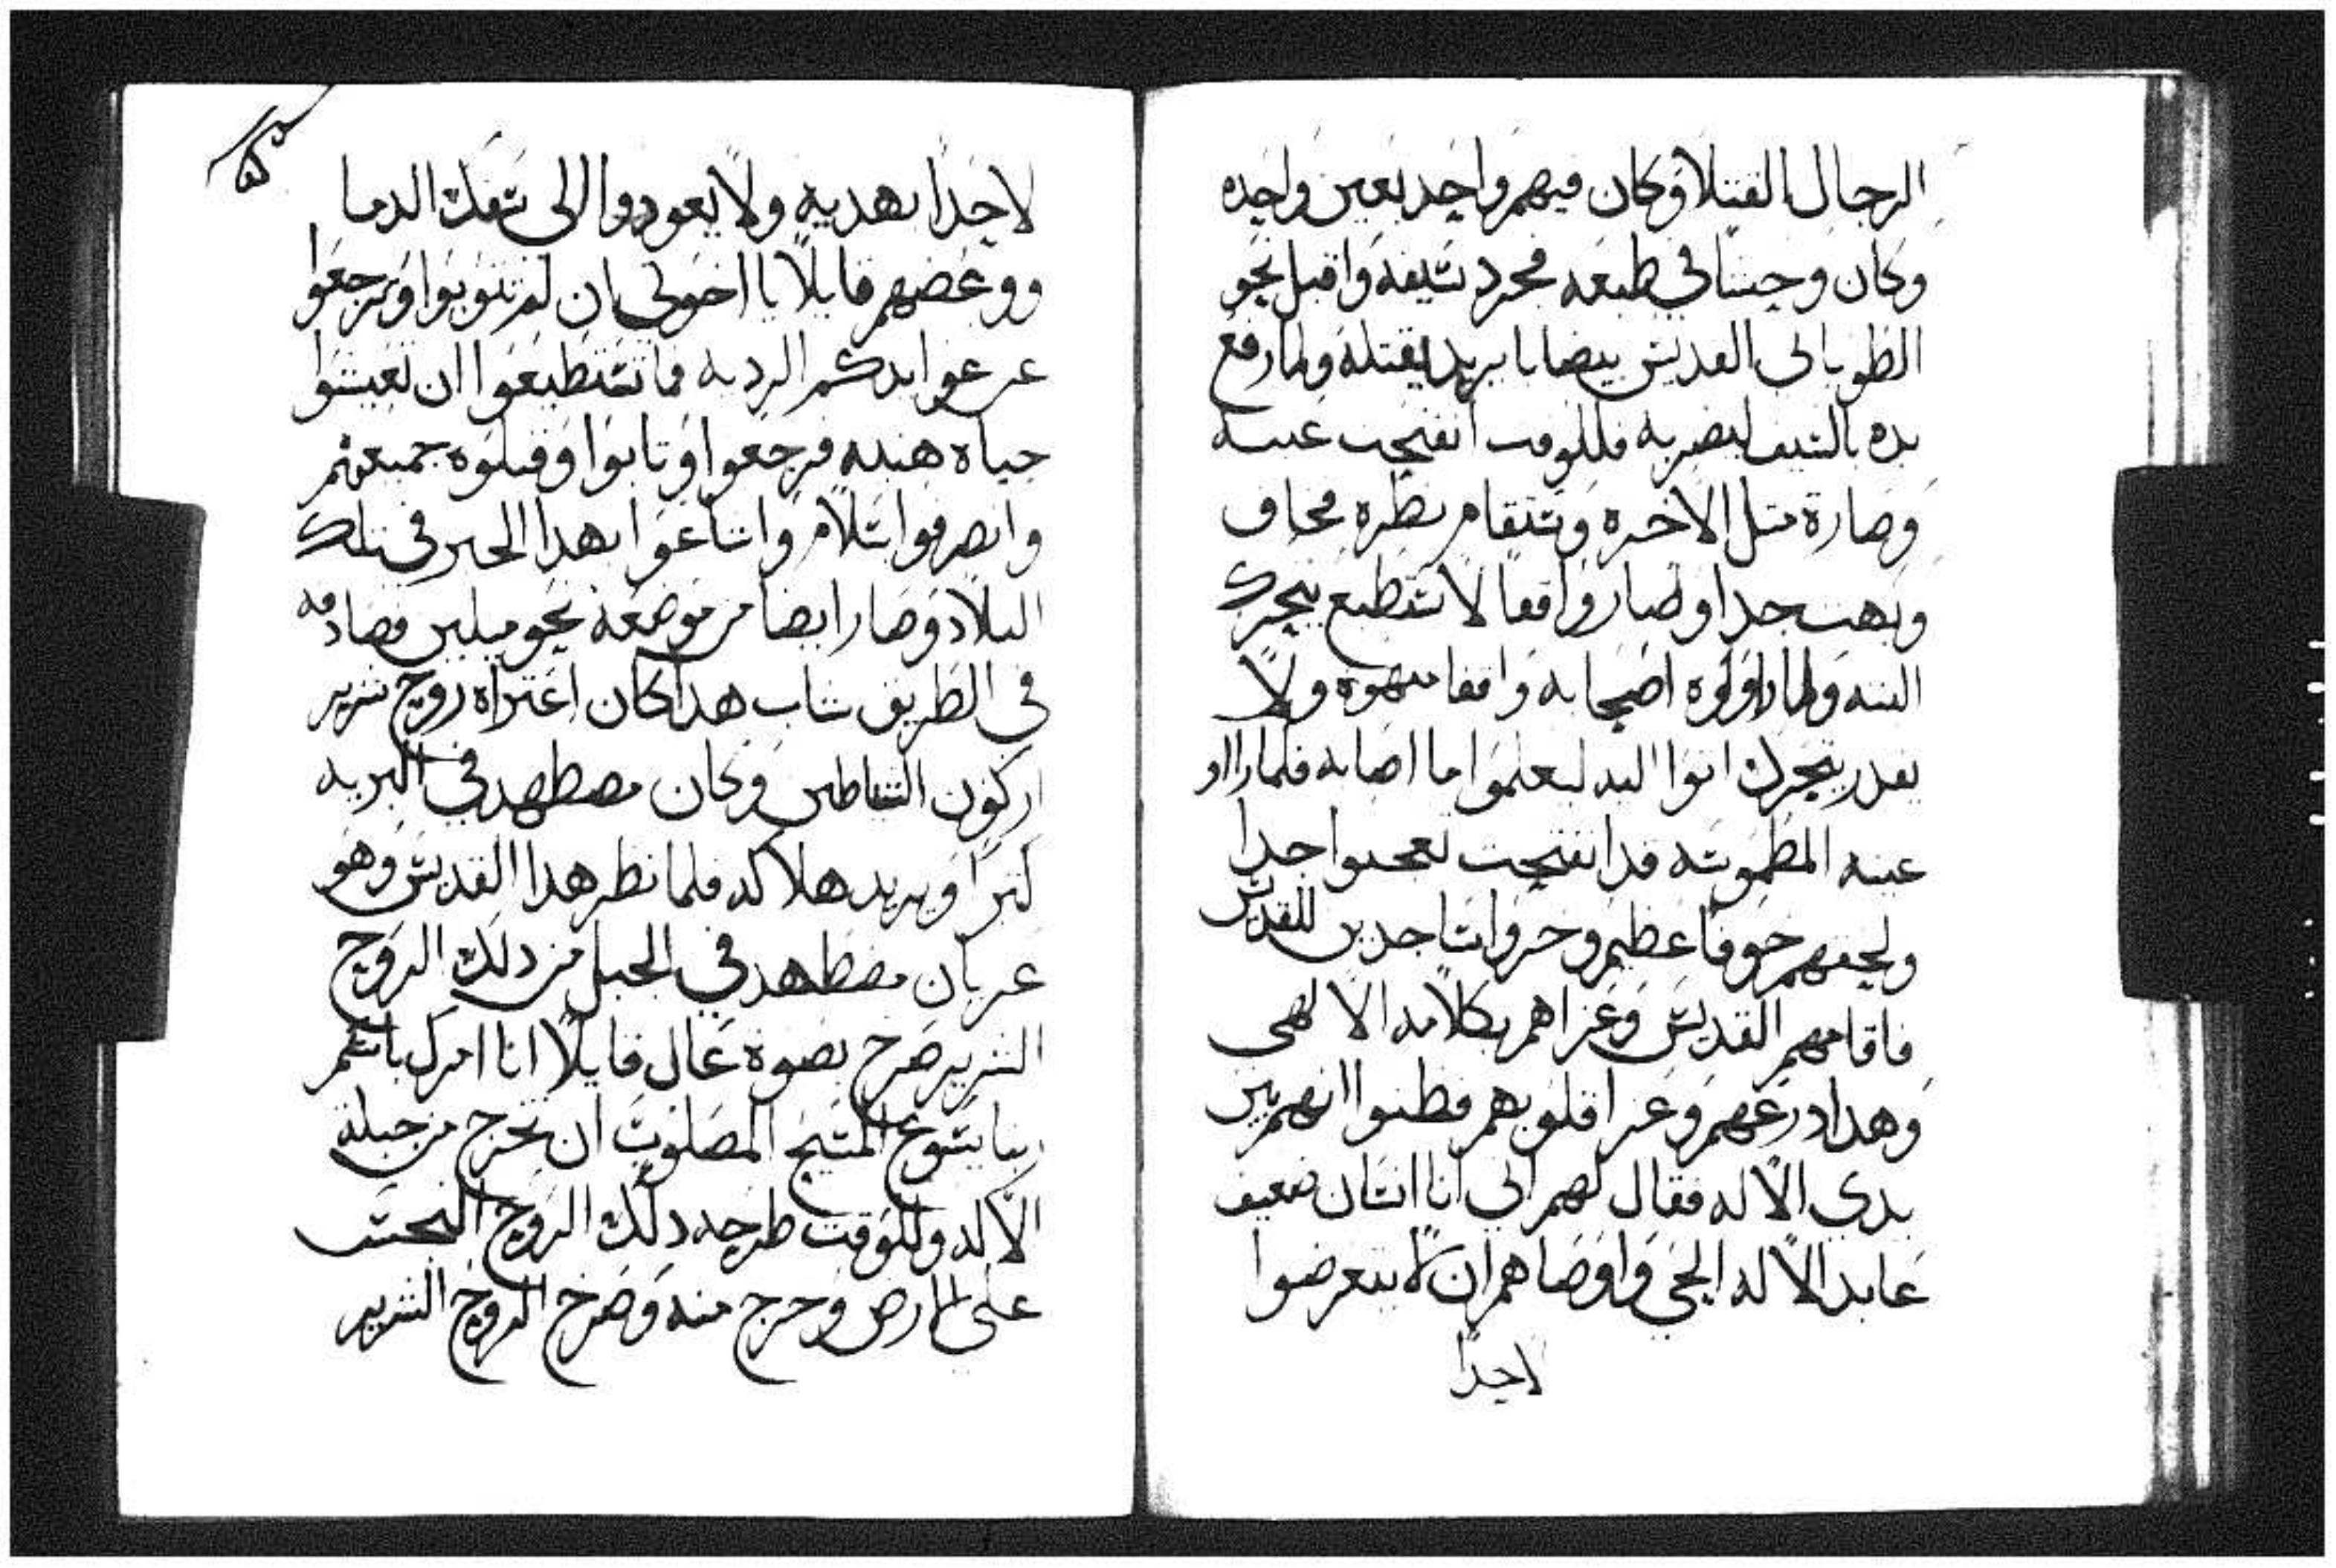 الرجال القتلا وكان فيهم واحد بعين واحده
وكان وحشا في طبعه فجرد سيفه واقبل نحو
الطوباني القديس بيضابا يريد يقتله ولما رفع
يده بالسيف ليضربه فللوقت انفتحت عينه
وصارة متل الاخره وستقام نظره فخاف
وبهت جدا وصار واقفا لا يستطيع يتحرك
البته ولما راوه اصحابه واقفا مبهوة ولا
يقدر يتحرك اتوا اليه ليعلموا ما اصابه فلما راوا
عينه المطموسه قد انفتحت تعجبوا جدا
ولحقهم خوفا عظيم وخروا ساجدين للقديس
فاقامهم القديس وعزاهم بكلامه الالهي
وهدا روعهم وعزا قلوبهم فظنوا انهم بين
يدي الاله فقال لهم اني انا انسان ضعيف
عابد الاله الحي واوصاهم ان لا يتعرضوا
لاحدا
لاحدا بهديه ولا يعودوا الى سفك الدما
ووعضهم قايلا يا اخوتي ان لم تتوبوا وترجعوا
عن عوايدكم الرديه فما تستطيعوا ان تعيشوا
حياة هنيه فرجعوا وتابوا وقبلوه جميعهم
وانصرفوا بسلام واشاعوا بهدا الخبر في تلك
البلاد وصار ايضا من موضعه نحو ميلين فصادفه
في الطريق شاب هدا كان اعتراه روح شرير
اركون الشياطين وكان مضطهد في البريه
كثيرا ويريد هلاكه فلما نظر هدا القديس وهو
عريان مضطهد في الجبل من دلك الروح
الشرير صرخ بصوة عال قايلا انا امرك باسم
ربنا يسوع المسيح المصلوب ان تخرج من جبلة
الاله وللوقت طرحه دلك الروح النجس
على الارض وخرج منه وصرخ الروح الشرير